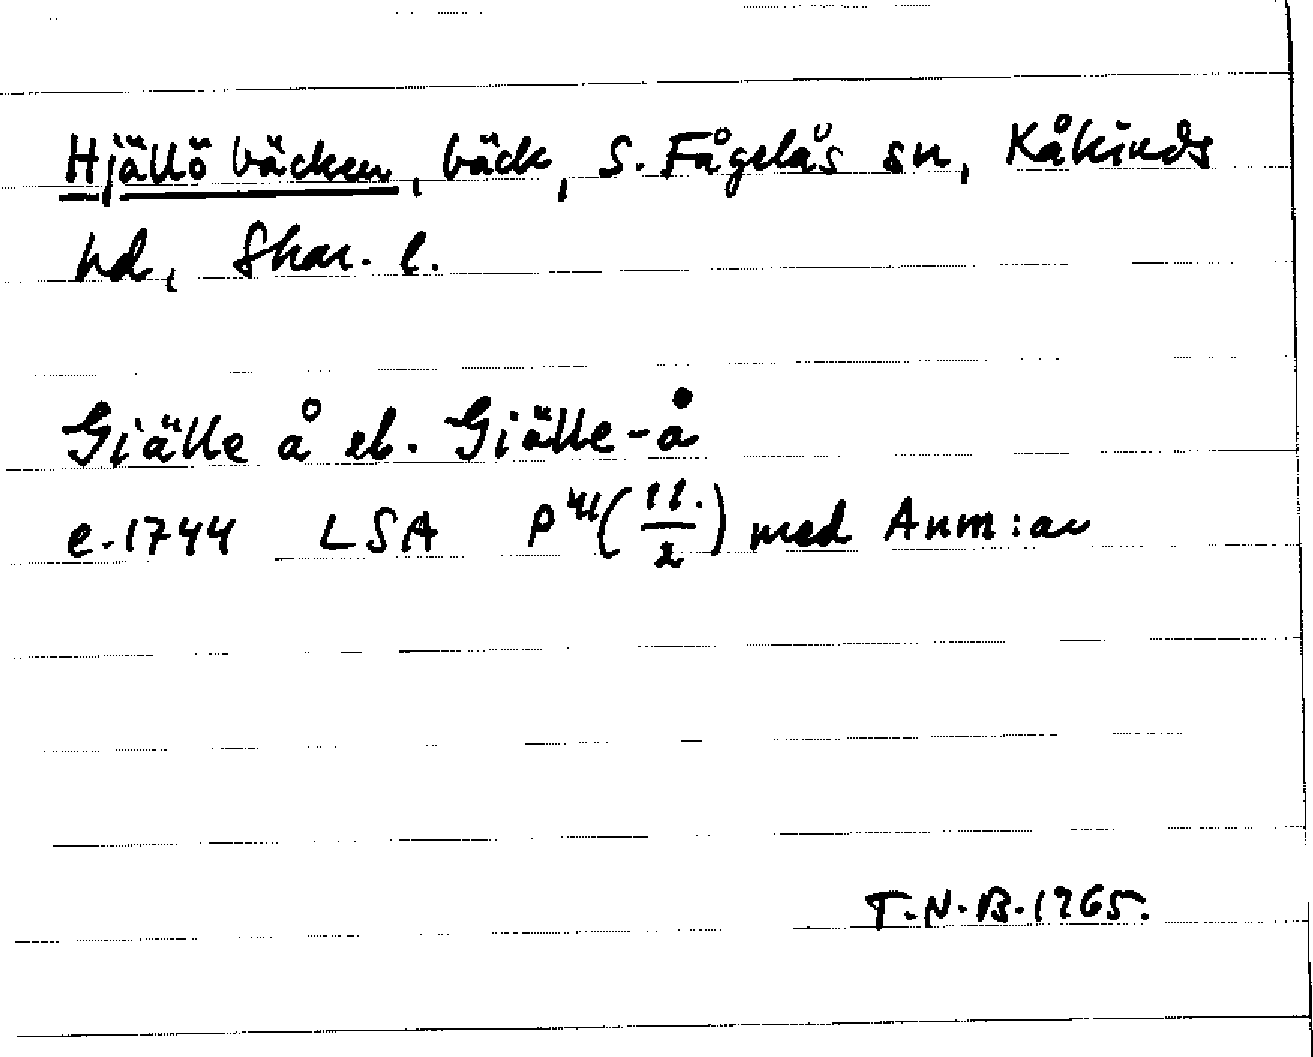 Hjällö bäcken, bäck, S. Fågelås sn, Kåkinds
hd, Skar. l.
Giälle å el. Giälle-å
e. 1744 LSA P (11./2) med Anm:ar
T.N.B. 1965.